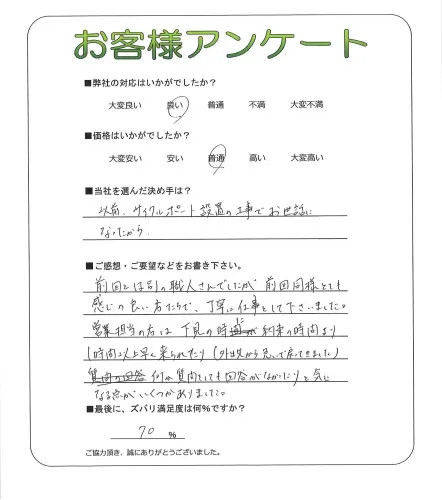 お客様アンケート
■弊社の対応はいかがでしたか?
大変良い 良い 普通 不満 大変不満
■価格はいかがでしたか?
大変安い 安い 普通 高い 大変高い
■当社を選んだ決め手は?
以前、サイクルポート設置の工事でお世話に
なったから。
■ご感想・ご要望などをお書き下さい。
前回とは別の職人さんでしたが、前回同様とても
感じの良い方たちで、丁寧に仕事をして下さいました。
営業担当の方は下見の時に約束の時間より
1時間以上早く来られたり(外出先から急いで戻ってきました)
質問の回答 何か質問をしても回答がなかったりと気に
なる点がいくつかありました。
■最後に、ズバリ満足度は何%ですか?
70 %
ご協力頂き、誠にありがとうございました。